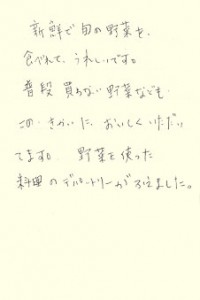 新鮮で旬の野菜を、
食べれて、うれしいです。
普段買わない野菜なども、
この、きかいに、おいしくいただい
てます。野菜を使った
料理のデパートリーがふえました。